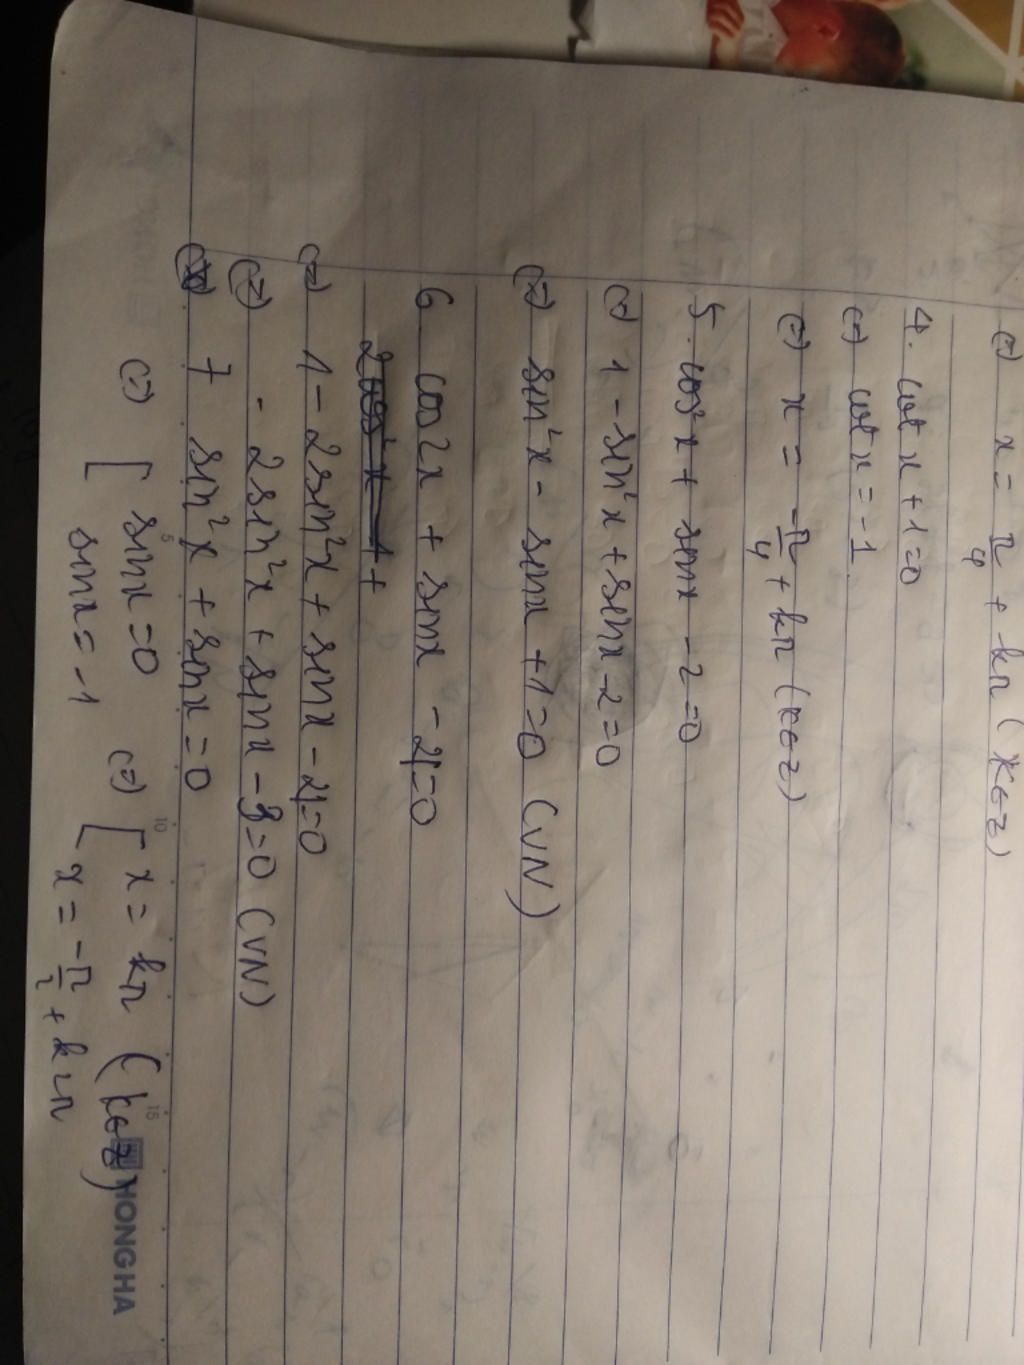 (=) x = π/4 + kπ (k∈Z)
4. cot x + 1 = 0
(=) cot x = -1
(=) x = -π/4 + kπ (k∈Z)
5. cos²x + sinx - 2 = 0
(=) 1 - sin²x + sinx - 2 = 0
(=) sin²x - sinx + 1 = 0 (VN)
6. cos2x + sinx - 4 = 0
(=) 1 - 2sin²x + sinx - 4 = 0
(=) - 2sin²x + sinx - 3 = 0 (VN)
7 sin²x + sinx = 0
(=) [ sinx = 0 (=) [ x = kπ (k∈Z)
sinx = -1 x = -π/2 + k2π
5 10 15 HONG HA